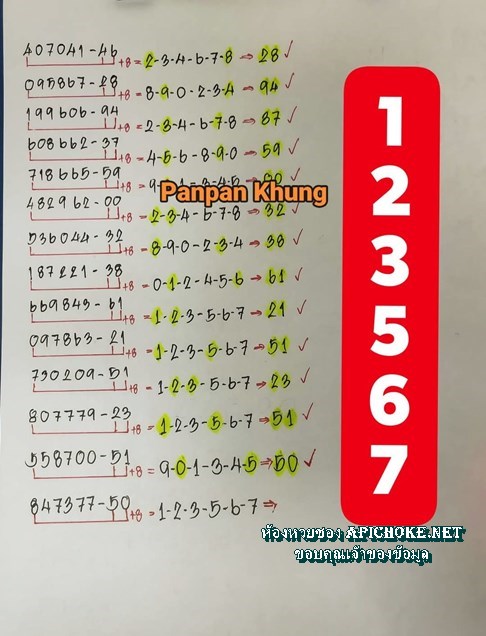 407041-46
+8 = 2-3-4-6-7-8 ⇒ 28 ✓
095867-28
+8 = 8-9-0-2-3-4 ⇒ 94 ✓
199606-94
+8 = 2-3-4-6-7-8 ⇒ 87 ✓
608662-37
+8 = 4-5-6-8-9-0 ⇒ 59 ✓
718665-59
+8 = 9-
482962-00
+8 = 2-3-4-6-7-8 ⇒ 32 ✓
536044-32
+8 = 8-9-0-2-3-4 ⇒ 38 ✓
187221-38
+8 = 0-1-2-4-5-6 ⇒ 61 ✓
669843-61
+8 = 1-2-3-5-6-7 ⇒ 21 ✓
097863-21
+8 = 1-2-3-5-6-7 ⇒ 51 ✓
730209-51
+8 = 1-2-3-5-6-7 ⇒ 23 ✓
807779-23
+8 = 1-2-3-5-6-7 ⇒ 51 ✓
558700-51
+8 = 9-0-1-3-4-5 ⇒ 50 ✓
847377-50
+8 = 1-2-3-5-6-7 ⇒
Panpan Khung
1
2
3
5
6
7
ห้องหวยซอง APICHOKE.NET
ขอบคุณเจ้าของข้อมูล